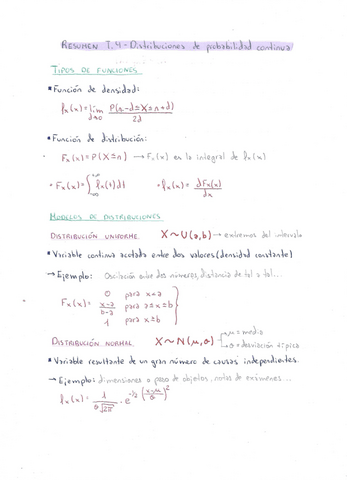 RESUMEN T.4 - Distribuciones de probabilidad continua
TIPOS DE FUNCIONES
▪ Función de densidad:
fₓ(x) = lím d→0 P(x-d≤X≤x+d) / 2d
▪ Función de distribución:
Fₓ(x) = P(X≤x) → Fₓ(x) es la integral de fₓ(x)
· Fₓ(x) = ∫ fₓ(t)dt · fₓ(x) = dFₓ(x) / dx
MODELOS DE DISTRIBUCIONES
DISTRIBUCIÓN UNIFORME X~U(a,b) → extremos del intervalo
▪ Variable continua acotada entre dos valores (densidad constante)
→ Ejemplo: Oscilación entre dos números, distancia de tal a tal...
0 para x<a
Fₓ(x) = x-a / b-a para a≤x≤b
1 para x≥b
DISTRIBUCIÓN NORMAL X~N(μ,σ) → μ = media
→ σ = desviación típica
▪ Variable resultante de un gran número de causas independientes.
→ Ejemplo: dimensiones o peso de objetos, notas de exámenes...
fₓ(x) = 1 / σ√2π · e^-1/2 (x-μ / σ)²